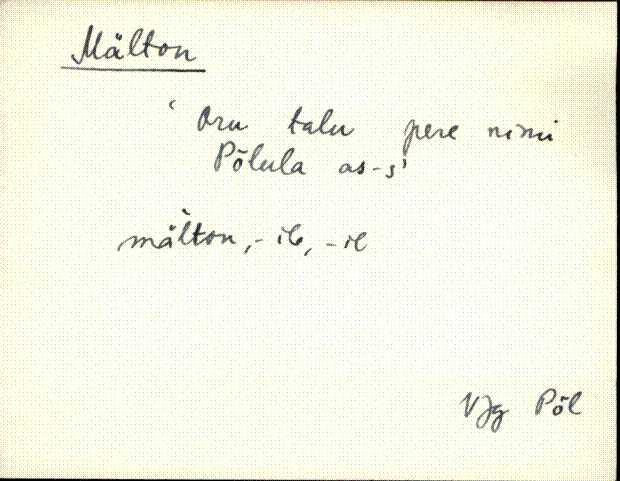 Mälton
‘Oru talu pere nimi
Põlula as-s’
mäl̀ton, -il, -il
VJg Põl